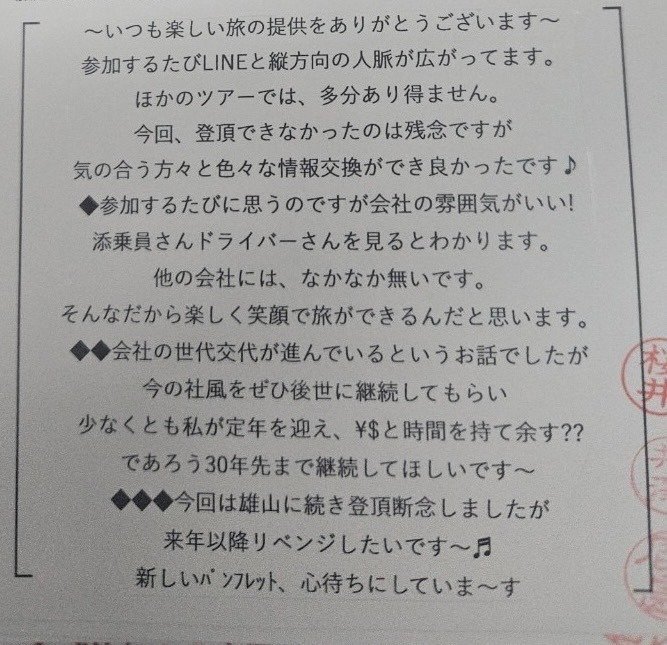 ～いつも楽しい旅の提供をありがとうございます～
参加するたびLINEと縦方向の人脈が広がってます。
ほかのツアーでは、多分あり得ません。
今回、登頂できなかったのは残念ですが
気の合う方々と色々な情報交換ができ良かったです♪
◆参加するたびに思うのですが会社の雰囲気がいい!
添乗員さんドライバーさんを見るとわかります。
他の会社には、なかなか無いです。
そんなだから楽しく笑顔で旅ができるんだと思います。
◆◆会社の世代交代が進んでいるというお話でしたが
今の社風をぜひ後世に継続してもらい
少なくとも私が定年を迎え、¥$と時間を持て余す??
であろう30年先まで継続してほしいです～
◆◆◆今回は雄山に続き登頂断念しましたが
来年以降リベンジしたいです～♬
新しいﾊﾟﾝﾌﾚｯﾄ、心待ちにしていま～す
桜井